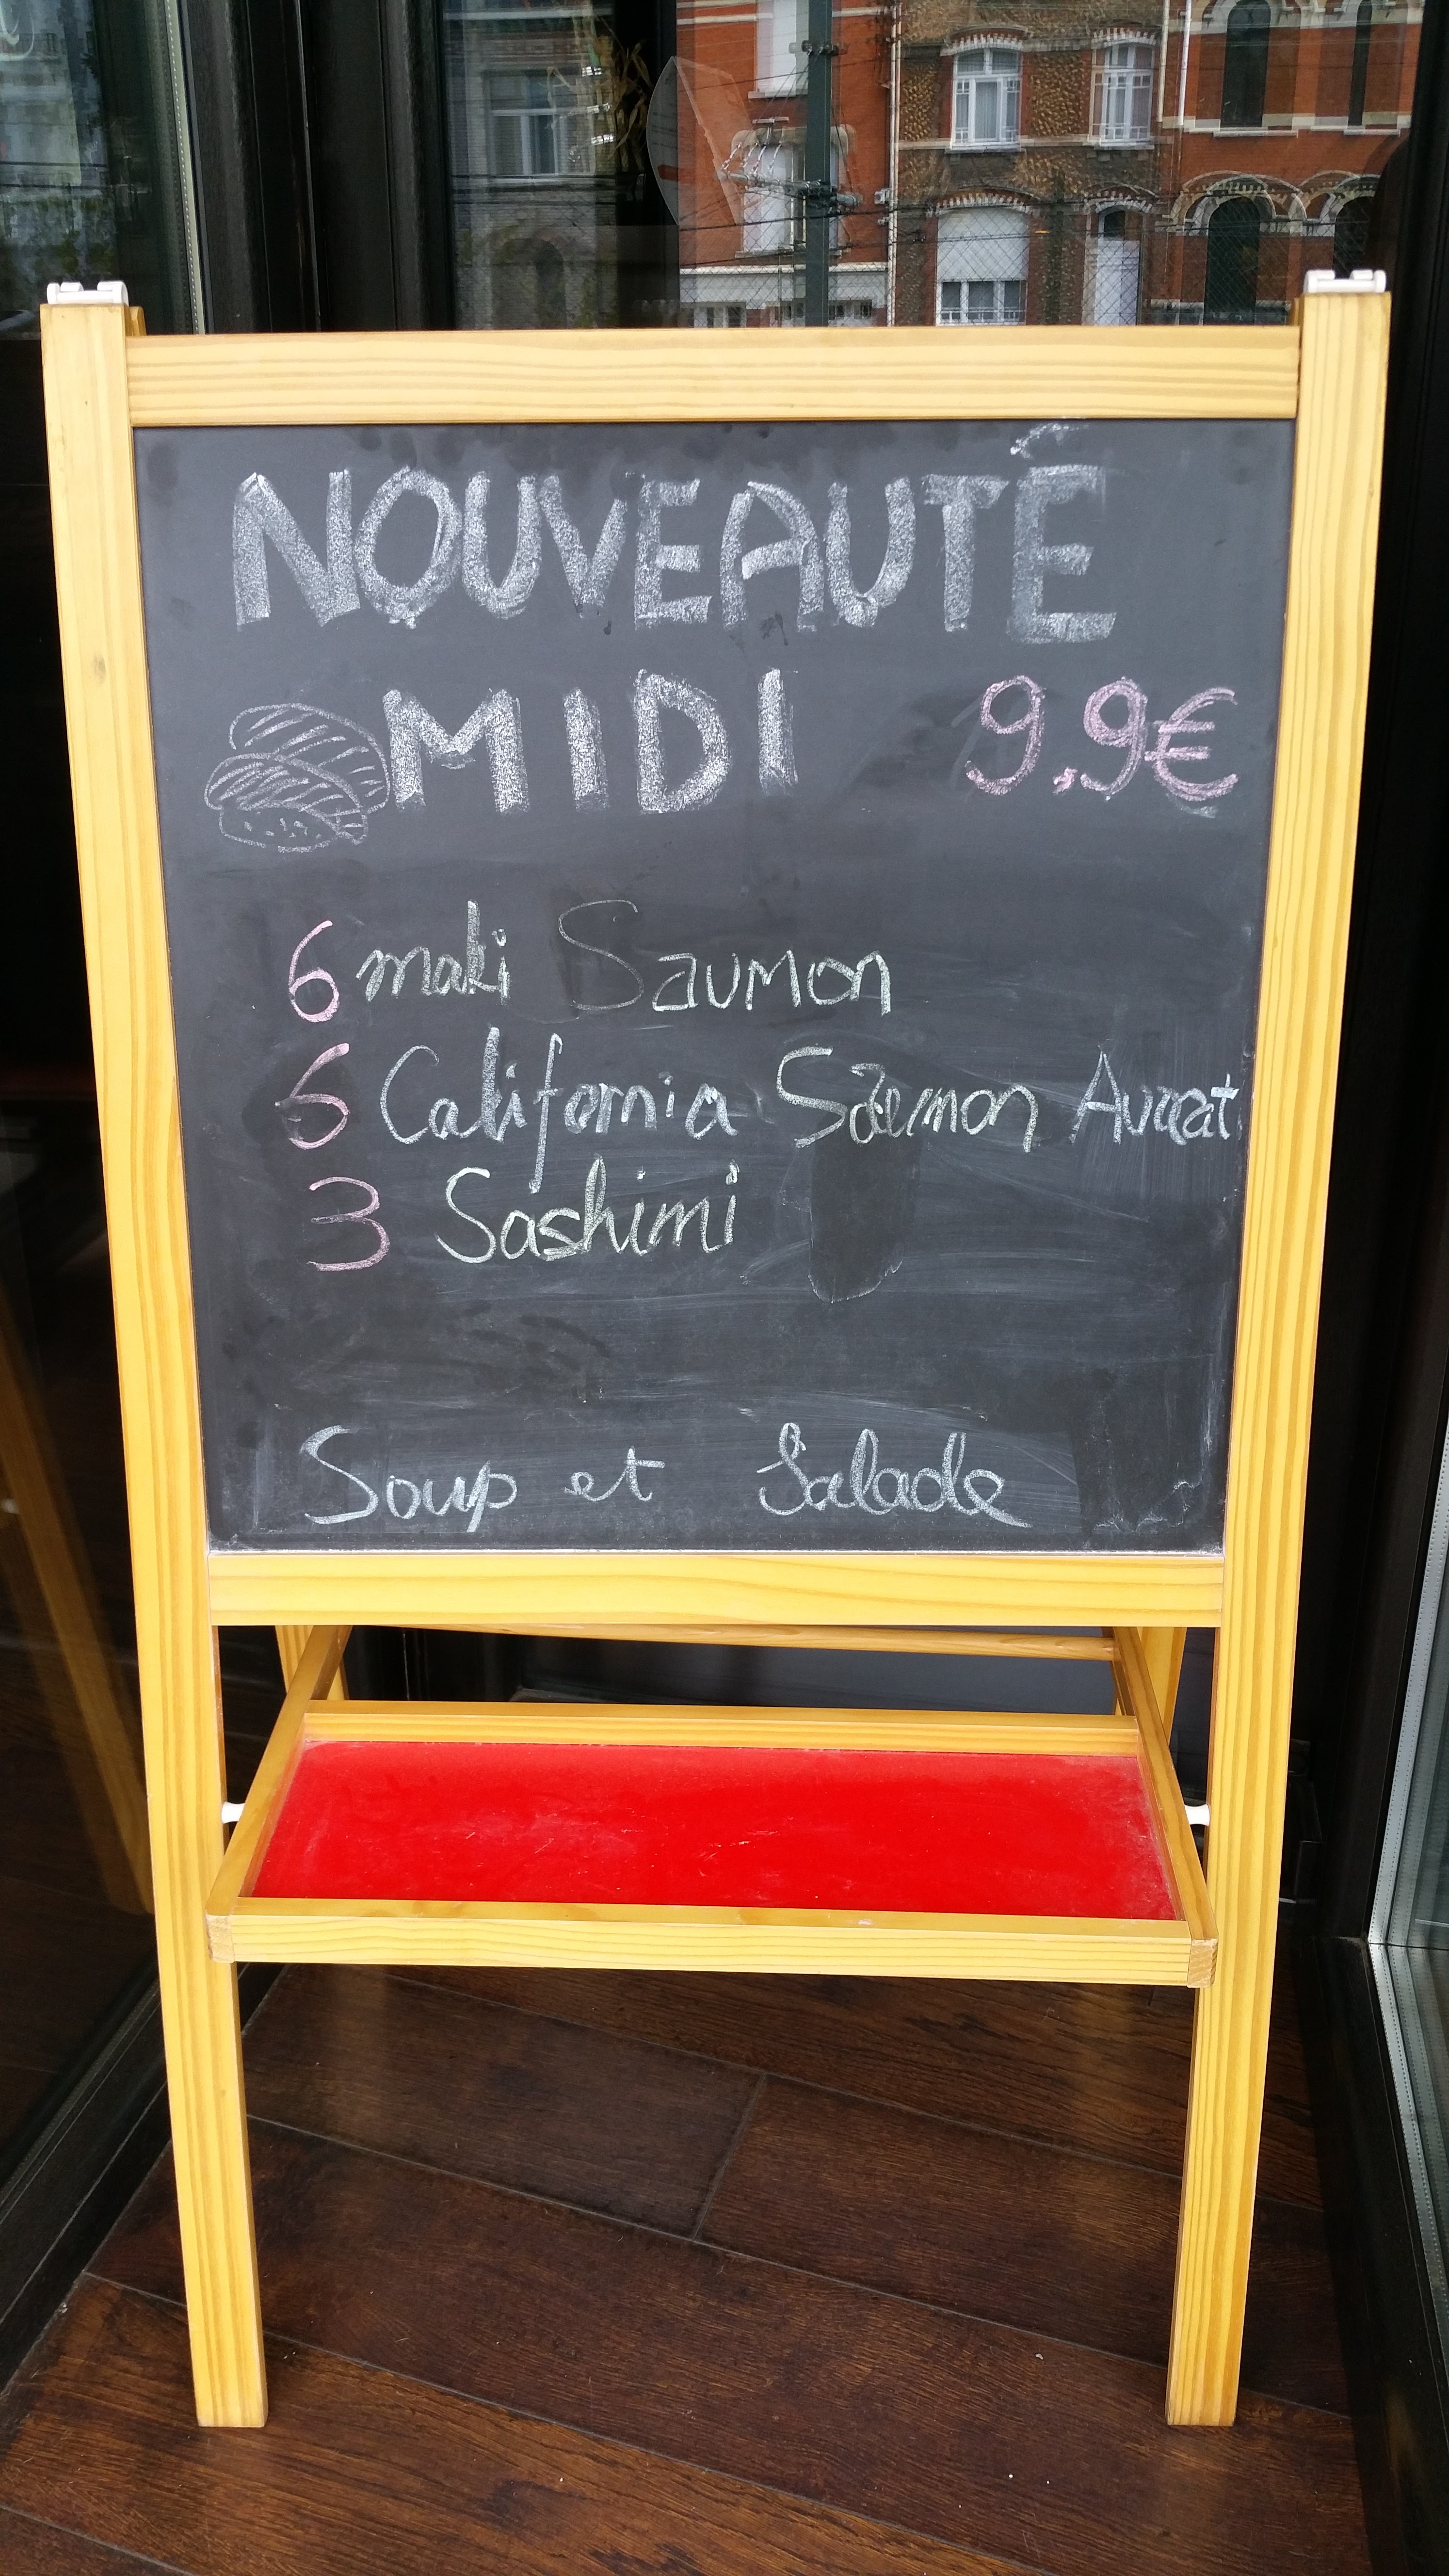 NOUVEAUTÉ
MIDI 9.9€
6 maki Saumon
6 California Saumon
3 Sashimi
Soup et Salade